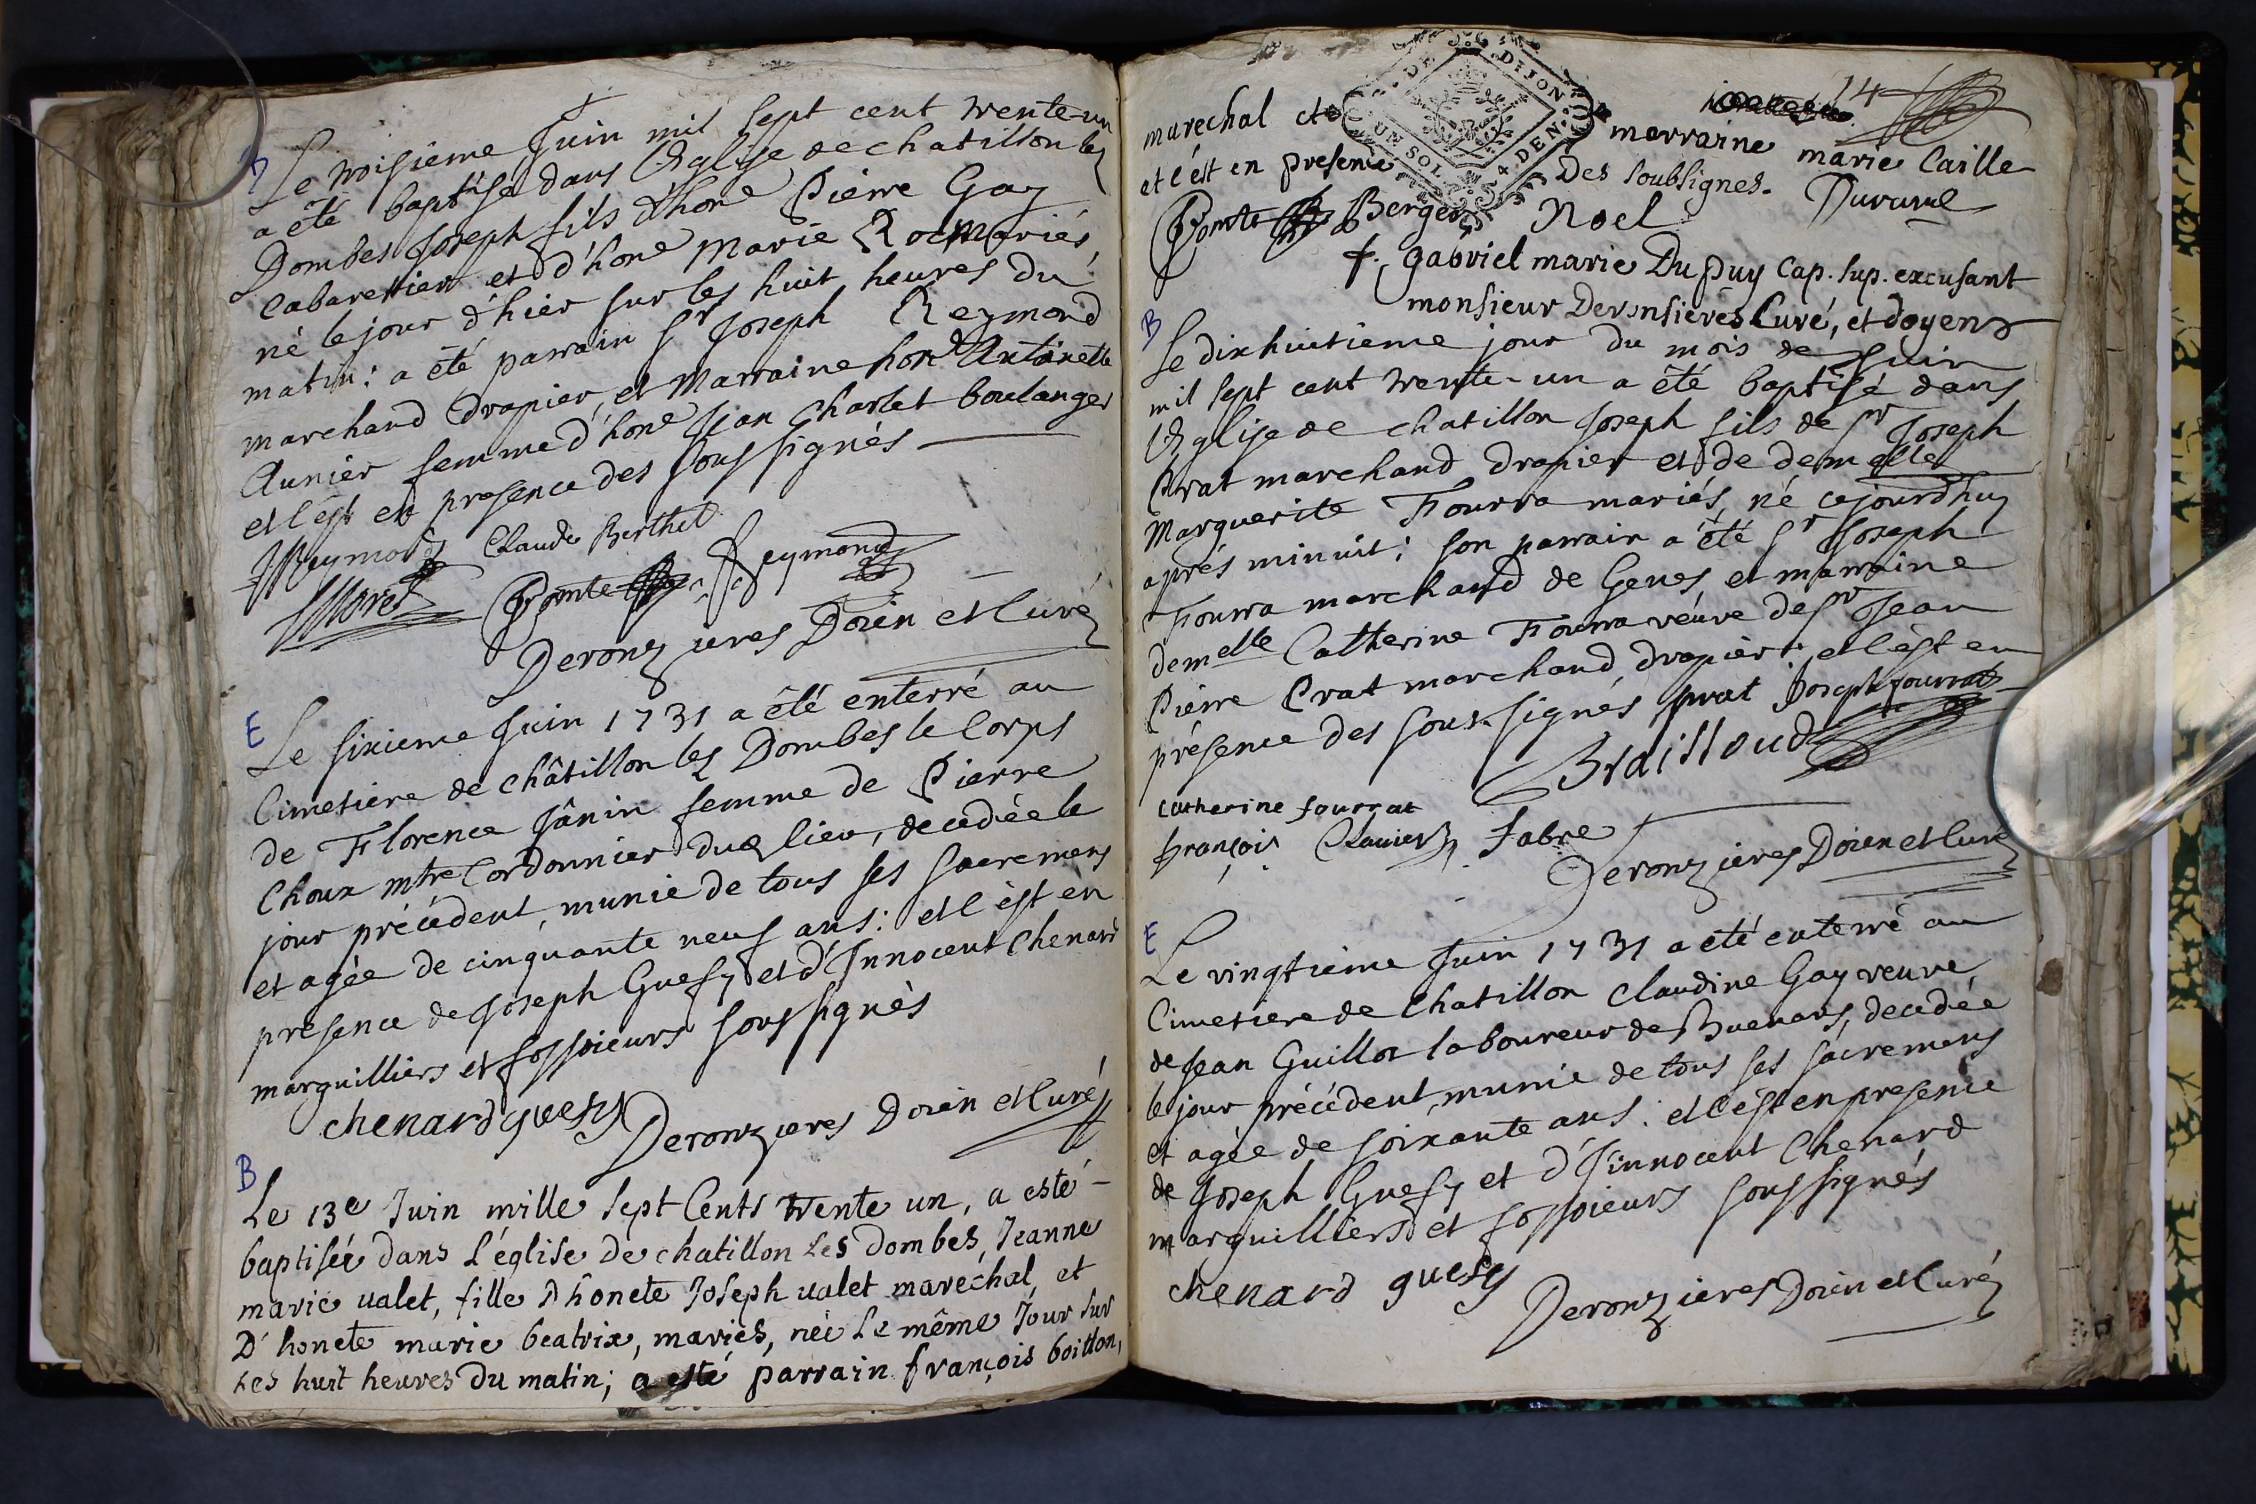 B
Le troisieme Juin mil sept cent trente-un
a êté baptisé dans l'Eglise de chatillon les
Dombes Joseph fils d'hone Pièrre Gay
Cabarettier et d'hone Marie Roch mariés,
né le jour d'hier sur les huit heures du
matin: a êté parrain sr Joseph Reymond
marchand drapier, et Marraine hone Antoinette
Aunier femme d'hone Jean Charlet boulanger
et c'est en presence des soussignés
JReymond Claude Berthet
Moret Comte Reymond
Deronzieres Doien et Curé
E
Le sixieme Juin 1731 a êté enterré au
Cimetiere de châtillon les Dombes le Corps
de Florence Jânin femme de Pierre
Choux mtre Cordonnier dud lieu, decedée le
jour précédent, munie de tous ses sacremens
et agée de cinquante neuf ans: et c'est en
presence de Joseph Guesy et d'Innocent Chenard
marguilliers et fossoieurs soussignés
chenard guesy Deronzieres Doien et Curé
B
Le 13e Juin mille sept Cents trente un, a esté
baptisée dans L'église de chatillon Les dombes, Jeanne
marie valet, fille D'honete Joseph valet maréchal, et
D'honete marie beatrix, mariés, née Le même Jour sur
Les huit heures Du matin; a esté parrain françois boitton,
14
DE DIJON
UN SOL 4 DEN.
marechal et marraine marie Caille
et c'est en presence Des soubsignes.
Comte Berger Noel Duraval
f. gabriel marie Dupuy Cap. sup. excusant
monsieur Deronsieres Curé, et doyen
B
Le dixhuitieme jour du mois de Juin
mil sept cent trente-un a êté baptisé dans
l'Eglise de chatillon Joseph fils de sr Joseph
Prat marchand drapier et de demelle
Marguerite Fourra mariés, né cejourd'huy
aprés minuit; son parrain a êté sr Joseph
Fourra marchand de Genes et marraine
demelle Catherine Fourra veuve de sr Jean
Pièrre Prat marchand drapier: et c'est en
présence des sous-signés prat Joseph fourrat
Braisloud
catherine fourrat
françois Clavier Fabre
Deronzieres Doien et Curé
E
Le vingtieme Juin 1731 a êté enterré au
Cimetiere de chatillon Claudine Gay veuve
de Jean Guillot laboureur de Buenans, decedée
le jour précédent, munie de tous ses sacremens
et agée de soixante ans: et c'est en presence
de Joseph Guesy et d'Jinnocent Chenard
marguilliers et fossoieurs soussignés
chenard guesy
Deronzieres Doien et Curé